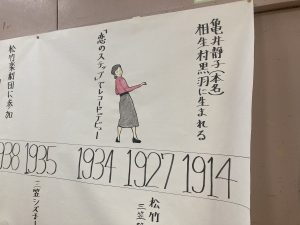 亀井静子(本名)
相生村黒羽に生まれる
「恋のステップ」でレコードデビュー
松竹楽劇団に参加
938 1935 1934 1927 1914
松竹
三笠
三笠シズ